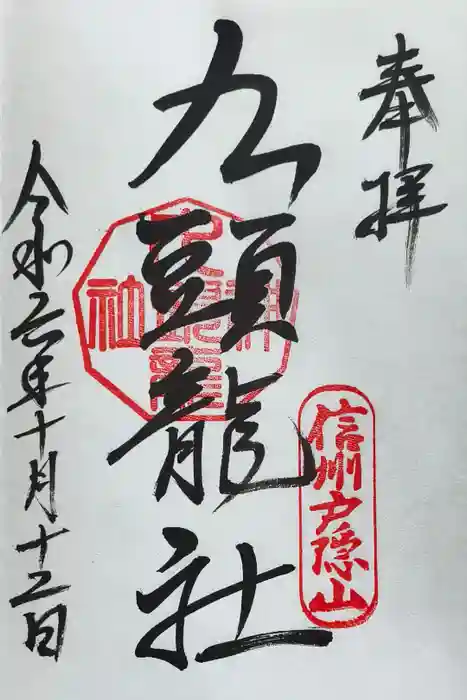 奉拝
信州戸隠山
九頭龍社
令和六年十月十二日